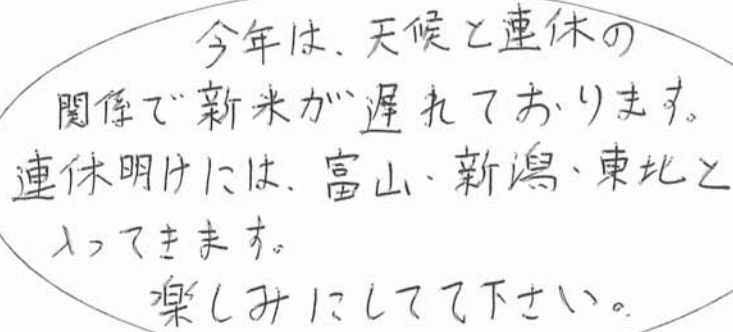 今年は、天候と連休の
関係で新米が遅れております。
連休明けには、富山・新潟・東北と
入ってきます。
楽しみにしてて下さい。